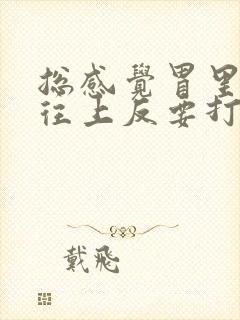 总感覺胃里
往上反要打
戴飛